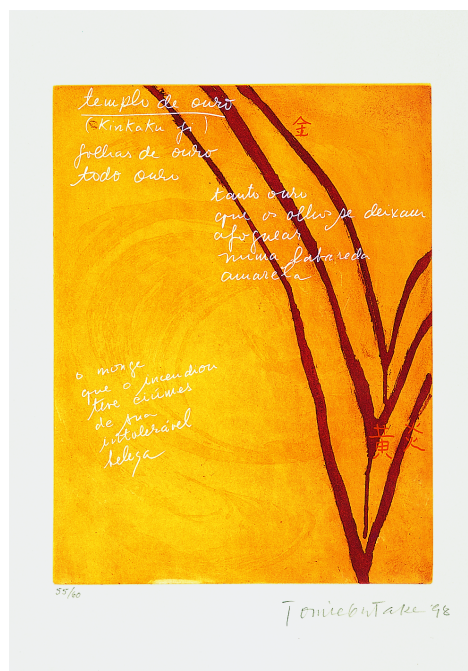 templo de ouro
(Kinkaku ji)
folhas de ouro
todo ouro
金
tanto ouro
que os olhos se deixam
afoguear
numa labareda
amarela
o monge
que o incendiou
teve ciúmes
de sua
intolerável
beleza
黄 炎
Tomie Ohtake 98